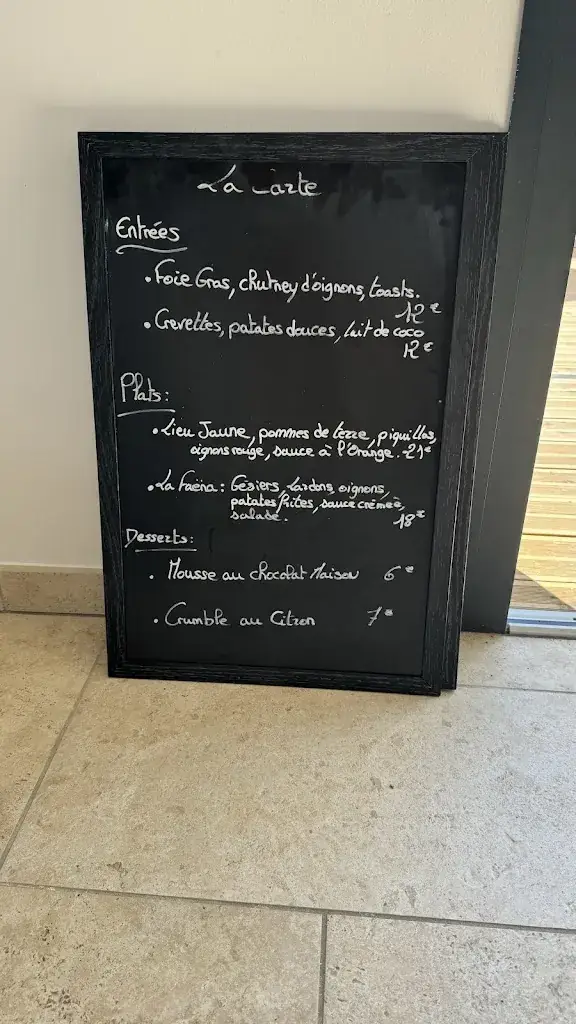 La Carte
Entrées
• Foie Gras, chutney d'oignons, toasts.
12€
• Crevettes, patates douces, lait de coco
12€
Plats:
• Lieu Jaune, pommes de terre, piquillos,
oignons rouge, sauce à l'Orange. 21€
• La Faëna: Gésiers, Lardons, oignons,
patates frites, sauce crémée,
salade. 18€
Desserts:
• Mousse au chocolat Maison 6€
• Crumble au Citron 7€